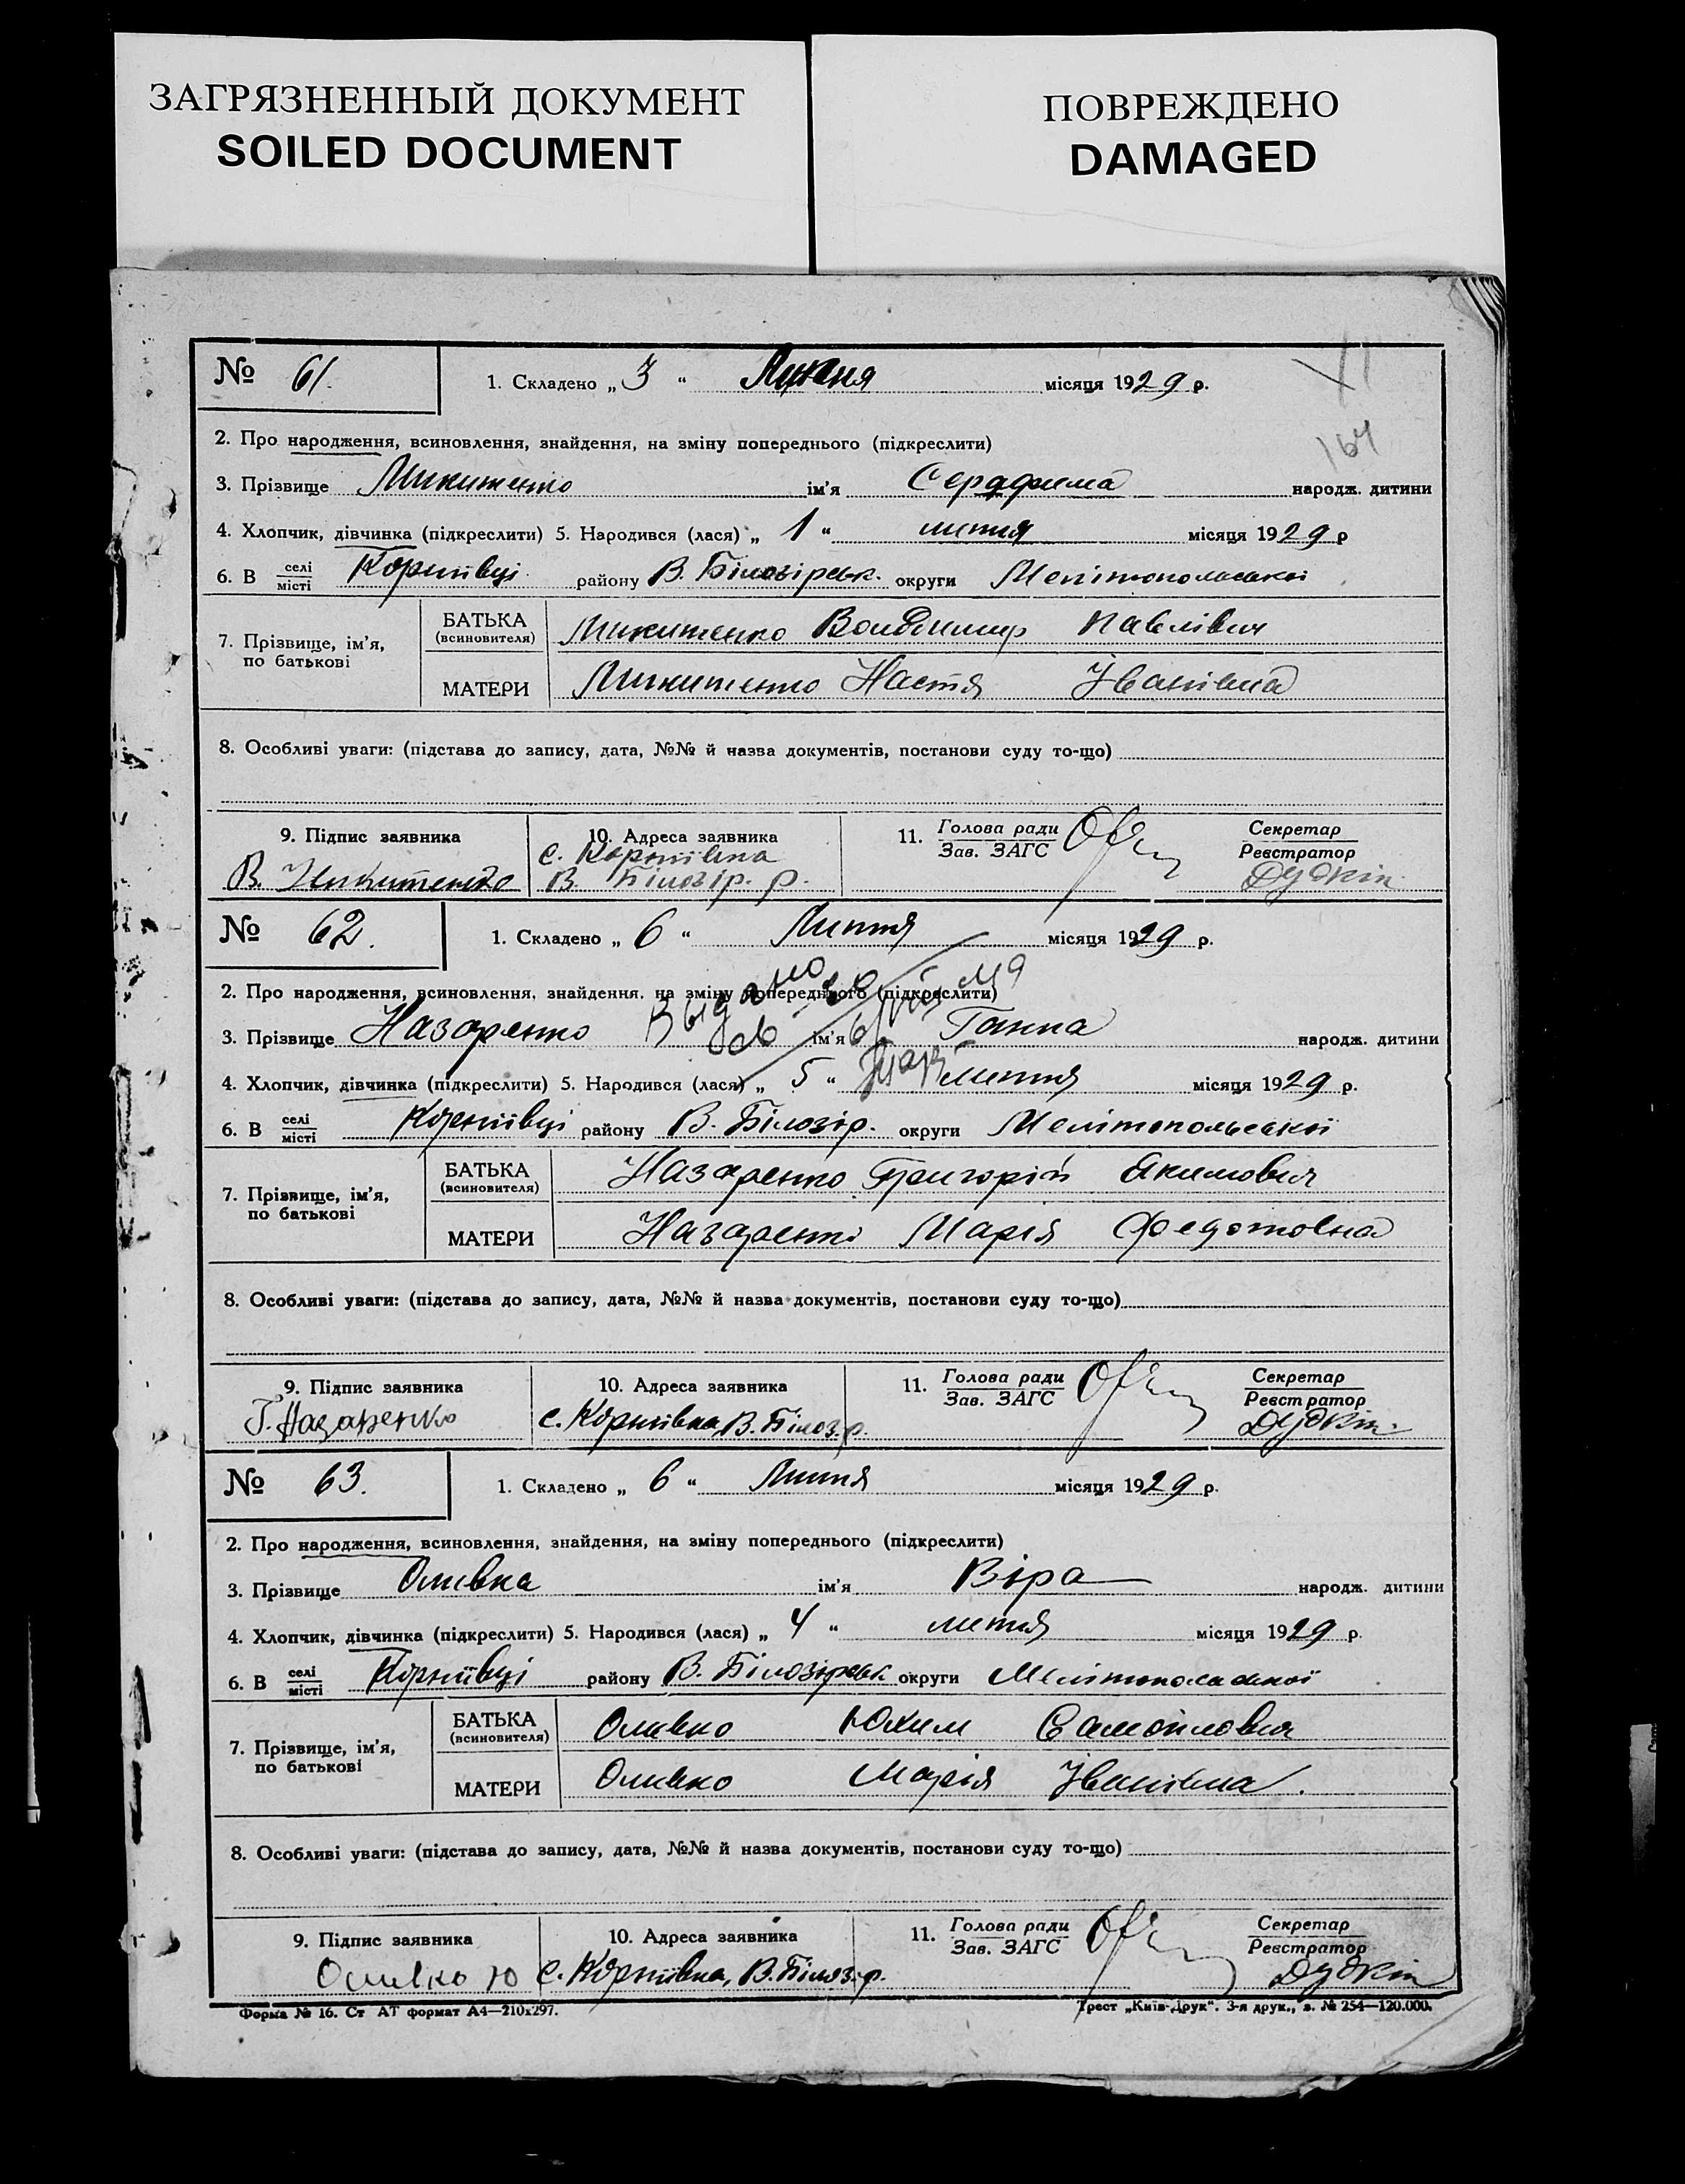 ЗАГРЯЗНЕННЫЙ ДОКУМЕНТ
SOILED DOCUMENT
ПОВРЕЖДЕНО
DAMAGED
№ 61. 1. Складено „ 3 “ місяця 1929 р.
164
2. Про народження, всиновлення, знайдення, на зміну попереднього (підкреслити)
3. Прізвище Микитенко ім'я Серафима народж. дитини
4. Хлопчик, дівчинка (підкреслити) 5. Народився (лася) „ 1 “ липня місяця 1929 р
6. В селі/місті Корніївці району В. Білозірськ. округи Мелітопольської
7. Прізвище, ім'я, по батькові
БАТЬКА (всиновителя) Микитенко Володимир Павлович
МАТЕРИ Микитенко Настя Іванівна
8. Особливі уваги: (підстава до запису, дата, №№ й назва документів, постанови суду то-що)
9. Підпис заявника 10. Адреса заявника 11. Голова ради Зав. ЗАГС Секретар Реєстратор
с. Корніївка
В. Никитенко В. Білозір. р. Дудкін
№ 62. 1. Складено „ 6 “ Липня місяця 1929 р.
2. Про народження, всиновлення, знайдення, на зміну попереднього (підкреслити)
Выдано
3. Прізвище Назаренко ім'я Ганна народж. дитини
4. Хлопчик, дівчинка (підкреслити) 5. Народився (лася) „ 5 “ липня місяця 1929 р.
6. В селі/місті Корніївці району В. Білозір. округи Мелітопольської
7. Прізвище, ім'я, по батькові
БАТЬКА (всиновителя) Назаренко Григорій Якимович
МАТЕРИ Назаренко Марія Федотовна
8. Особливі уваги: (підстава до запису, дата, №№ й назва документів, постанови суду то-що)
9. Підпис заявника 10. Адреса заявника 11. Голова ради Зав. ЗАГС Секретар Реєстратор
Г. Назаренко с. Корніївка, В. Білоз. р. Дудкін
№ 63. 1. Складено „ 6 “ Липня місяця 1929 р.
2. Про народження, всиновлення, знайдення, на зміну попереднього (підкреслити)
3. Прізвище Оливка ім'я Віра народж. дитини
4. Хлопчик, дівчинка (підкреслити) 5. Народився (лася) „ 4 “ липня місяця 1929 р.
6. В селі/місті Корніївці району В. Білозірськ округи Мелітопольської
7. Прізвище, ім'я, по батькові
БАТЬКА (всиновителя) Оливко Юхим Самойлович
МАТЕРИ Оливко Марія Іванівна.
8. Особливі уваги: (підстава до запису, дата, №№ й назва документів, постанови суду то-що)
9. Підпис заявника 10. Адреса заявника 11. Голова ради Зав. ЗАГС Секретар Реєстратор
Оливко Ю с. Корніївка, В. Білоз. р. Дудкін
Форма № 16. Ст АТ формат А4—210х297. Трест „Київ-Друк“. 3-я друк., з. № 254—120.000.